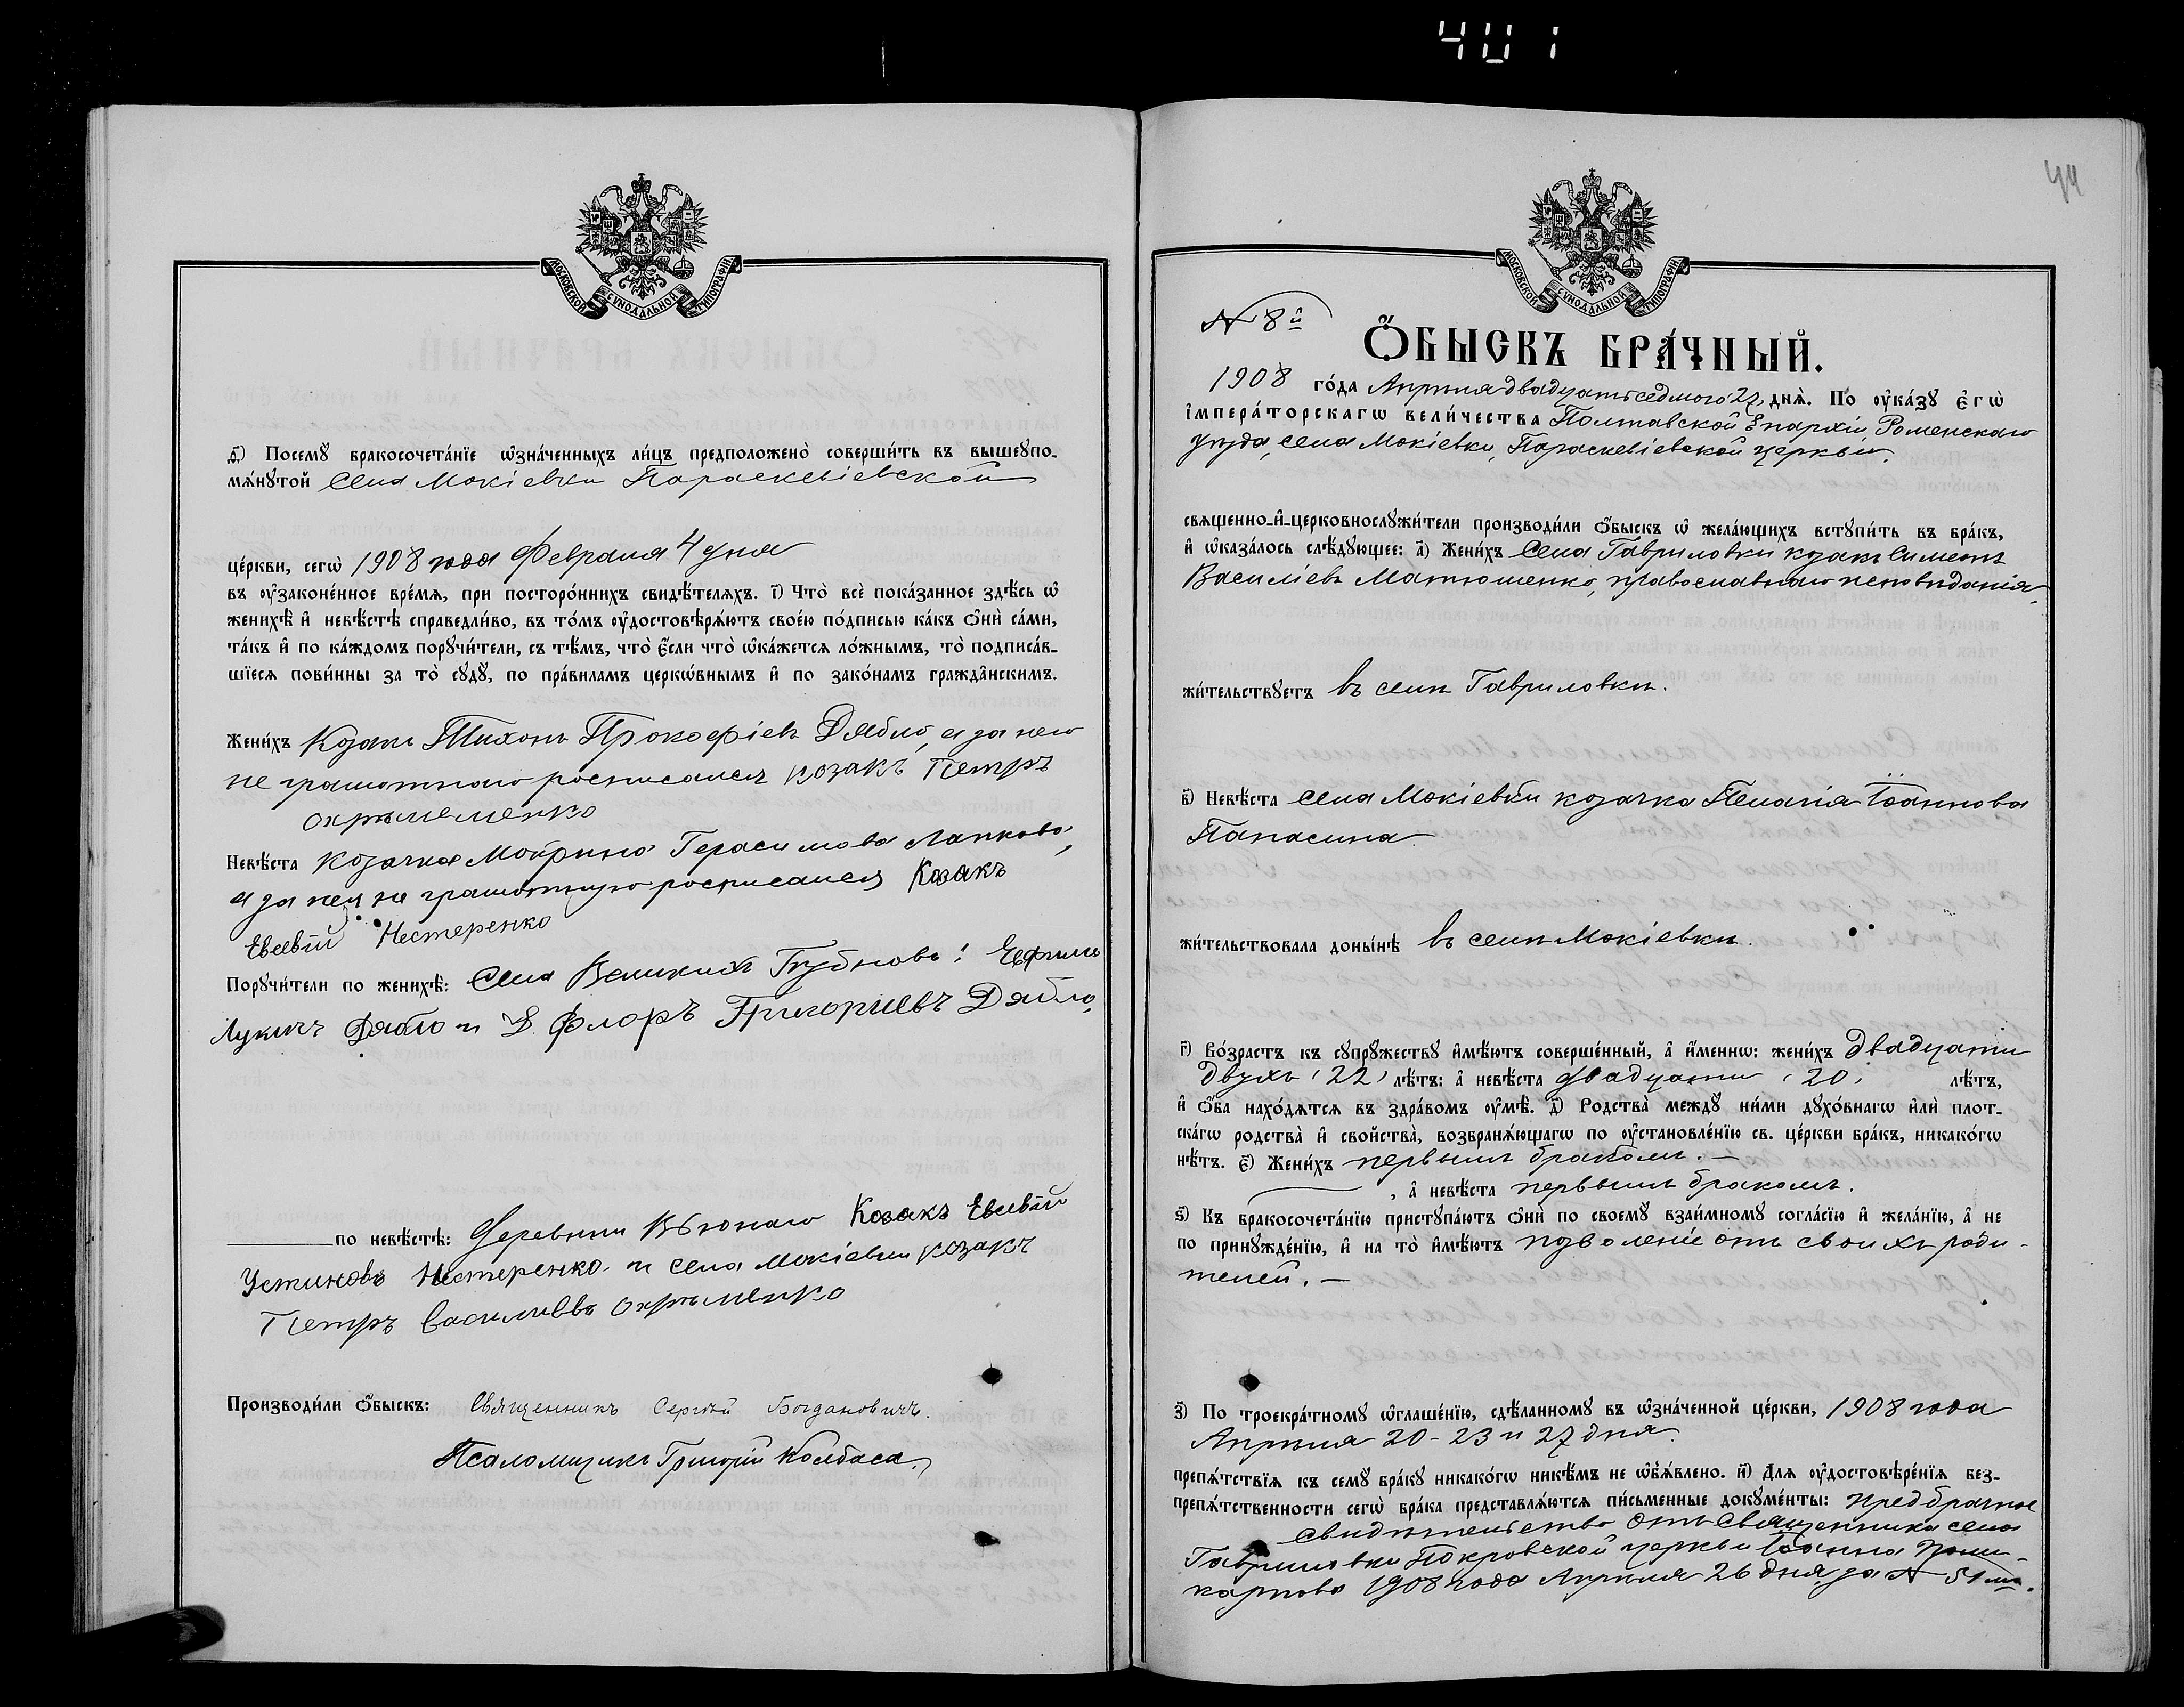 401
МОСКОВСКОЙ СУНОДАЛЬНОЙ ТИПОГРАФІИ
д҃) Посемꙋ бракосочета́нїе ѡ҆зна́ченныхъ ли́цъ предположено̀ соверши́ть въ вышеꙋпо-
мѧ́нꙋтой Села Мокіевки Параскевіевской
це́ркви, сегѡ̀ 1908 года Февраля 4 дня
въ ᲂу҆законе́нное вре́мѧ, при посторо́ннихъ свидѣ́телѧхъ. і҃) Что̀ всѐ пока́занное здѣ́сь ѡ҆
женихѣ̀ и҆ невѣ́стѣ справедли́во, въ то́мъ ᲂу҆достовѣрѧ́ютъ свое́ю по́дписью ка́къ ѻ҆нѝ са́ми,
та́къ и҆ по ка́ждомъ порꙋчи́тели, съ тѣ́мъ, что̀ є҆́сли что̀ ѡ҆ка́жетсѧ ло́жнымъ, то̀ подписа́в-
шїесѧ пови́нны за то̀ сꙋдꙋ̀, по пра́виламъ церко́внымъ и҆ по зако́намъ гражда́нскимъ.
Жени́хъ Козакъ Тихонъ Прокофіевъ Дябло, а за него
не грамотнаго росписался козакъ Петръ
Охрѣменко
Невѣ́ста Козачка Мотрина Герасимова Лапкова,
а за нея не грамотную росписался Козакъ
Евсевій Нестеренко
Порꙋчи́тели по женихѣ̀: Села Великихъ Бубновъ: Ефимъ
Лукичъ Дябло и Флоръ Григориевъ Дябло,
по невѣ́стѣ: Деревни Вьюнаго Козакъ Евсевій
Устиновъ Нестеренко и села Мокіевки козакъ
Петръ Василиевъ Охрѣменко
Производи́ли ѻ҆́быскъ: Священникъ Сергѣй Богдановичъ.
Псаломщикъ Григорій Колбаса.
44
МОСКОВСКОЙ СУНОДАЛЬНОЙ ТИПОГРАФІИ
№ 8й
Ѻ҆́БЫСКЪ БРА́ЧНЫЙ.
1908 го́да Апрѣля двадцать седмого 27 днѧ̀. По ᲂу҆ка́зꙋ є҆гѡ̀
і҆мпера́торскагѡ вели́чества Полтавской Епархіи, Роменскаго
уѣзда, села Мокіевки, Параскевіевской церкви.
свѧщенно-и҆-церковнослꙋжи́тели производи́ли ѻ҆́быскъ ѡ҆ жела́ющихъ встꙋпи́ть въ бра́къ,
и҆ ѡ҆каза́лось слѣ́дꙋющее: а҃) Жени́хъ Села Гавриловки козакъ Симеонъ
Василіевъ Матюшенко, православнаго исповѣданія,
жи́тельствꙋетъ въ селѣ Гавриловки.
в҃) Невѣ́ста села Мокіевки козачка Пелагія Іоаннова
Папасина
жи́тельствовала доны́нѣ въ селѣ Мокіевки.
г҃) Во́зрастъ къ сꙋпрꙋжествꙋ и҆мѣ́ютъ соверше́нный, а҆ и҆́меннѡ: жени́хъ двадцати
двухъ (22) лѣ́тъ: а҆ невѣ́ста двадцати (20) лѣ́тъ,
и҆ ѻ҆́ба нахо́дѧтсѧ въ здра́вомъ ᲂу҆мѣ̀. д҃) Родства̀ междꙋ̀ ни́ми дꙋхо́внагѡ и҆лѝ плот-
ска́гѡ родства̀ и҆ сво́йства̀, возбранѧ́ющагѡ по ᲂу҆становле́нїю св. це́ркви бра́къ, никако́гѡ
нѣ́тъ. є҃) Жени́хъ первымъ бракомъ. —
, а҆ невѣ́ста первымъ бракомъ.
ѕ҃) Къ бракосочета́нїю пристꙋпа́ютъ ѻ҆нѝ по своемꙋ̀ взаи́мномꙋ согла́сїю и҆ жела́нїю, а҆ не
по принꙋжде́нїю, и҆ на то̀ и҆мѣ́ютъ позволеніе отъ своихъ роди-
телей. —
з҃) По троекра́тномꙋ ѡ҆глаше́нїю, сдѣ́ланномꙋ въ ѡ҆зна́ченной це́ркви, 1908 года
Апрѣля 20 - 23 и 27 дня.
препѧ́тствїѧ къ семꙋ̀ бра́кꙋ никако́гѡ никѣ́мъ не ѡ҆б̾ѧ́влено. и҃) Длѧ ᲂу҆достовѣре́нїѧ без-
препѧ́тственности сегѡ̀ бра́ка представлѧ́ютсѧ пи́сьменные докꙋме́нты: предбрачное
свидѣтельство отъ священника села
Гавриловки Покровской церкви Іоанна Поли-
карпова 1908 года Апрѣля 26 дня за № 51м.